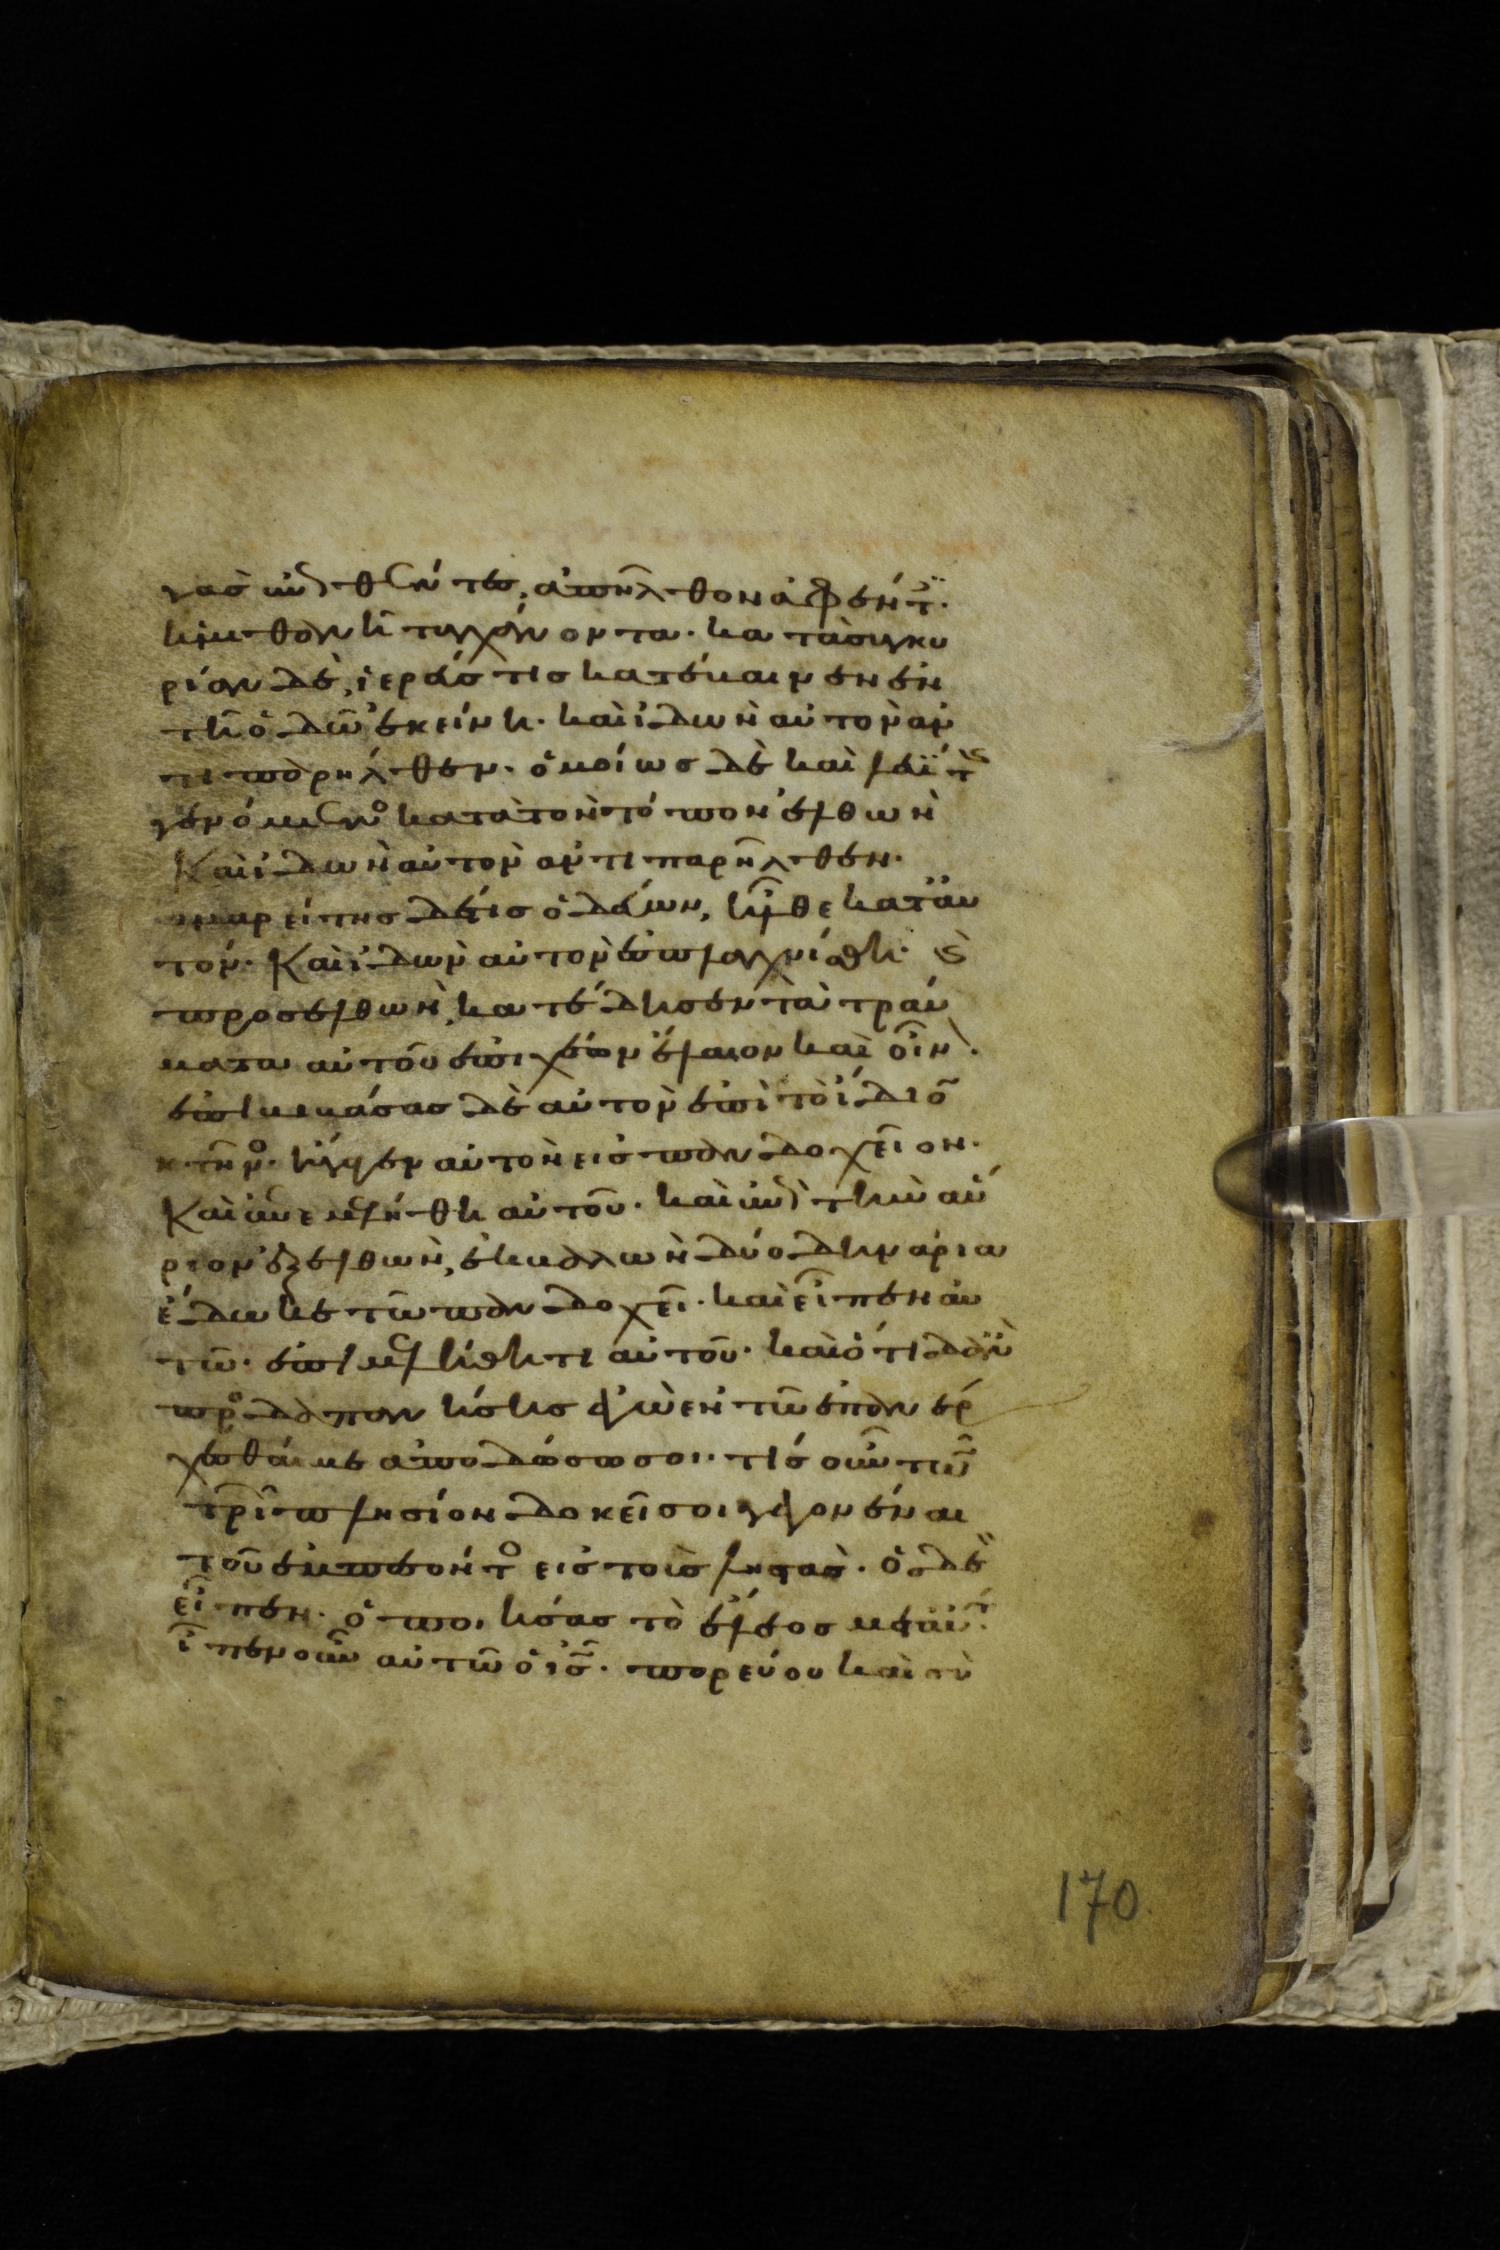 γασ ἐπιθέντεσ, ἀπῆλθον ἀφέντ̈
ἡμιθανῆ τυγχάνοντα. κατὰ συγκυ
ρίαν δὲ, ἱερεύσ τισ κατέβαινεν ἐν
τῆ ὁδῶ ἐκείνη. καὶ ἰδὼν αὐτὸν ἀν
τιπαρῆλθεν. ὁμοίωσ δὲ καὶ λευΐτησ
γενόμενοσ κατὰ τὸν τόπον ἐλθὼν
Καὶ ἰδὼν αὐτὸν ἀντιπαρῆλθεν.
μαρείτησ δέ τισ ὁδεύων, ἦλθε κατ αὐ
τόν. Καὶ ἰδὼν αὐτὸν ἐσπλαγχνίσθη. Καὶ
προσελθὼν, κατέδησεν τὰ τραύ
ματα αὐτοῦ ἐπιχέων ἔλαιον καὶ οἶνον.
ἐπιβιβάσασ δὲ αὐτὸν ἐπὶ τὸ ἴδιον
κτῆνοσ. ἤγαγεν αὐτὸν εἰσ πανδοχεῖον.
Καὶ ἐπεμελήθη αὐτοῦ. καὶ ἐπὶ τὴν αὔ
ριον ἐξελθὼν, ἐκβαλὼν δύο δηνάρια
ἔδωκε τῶ πανδοχεῖ. καὶ εἶπεν αὐ
τῶ. ἐπιμελήθητι αὐτοῦ. καὶ ὅτι δ ἂν
προσδαπανήσησ ἐγὼ ἐν τῶ ἐπανέρ
χεσθαί με ἀποδώσω σοι. τίσ οὖν τούτων
τῶν τριῶν πλησίον δοκεῖ σοι γεγονέναι
τοῦ ἐμπεσόντοσ εἰσ τοὺσ ληστασ. ὁ δὲ
εἶπεν. ὁ ποιήσασ τὸ ἔλεοσ μετ αὐτοῦ.
ἶπεν οὖν αὐτῶ ὁ ισ̄. πορεύου καὶ σὺ
170